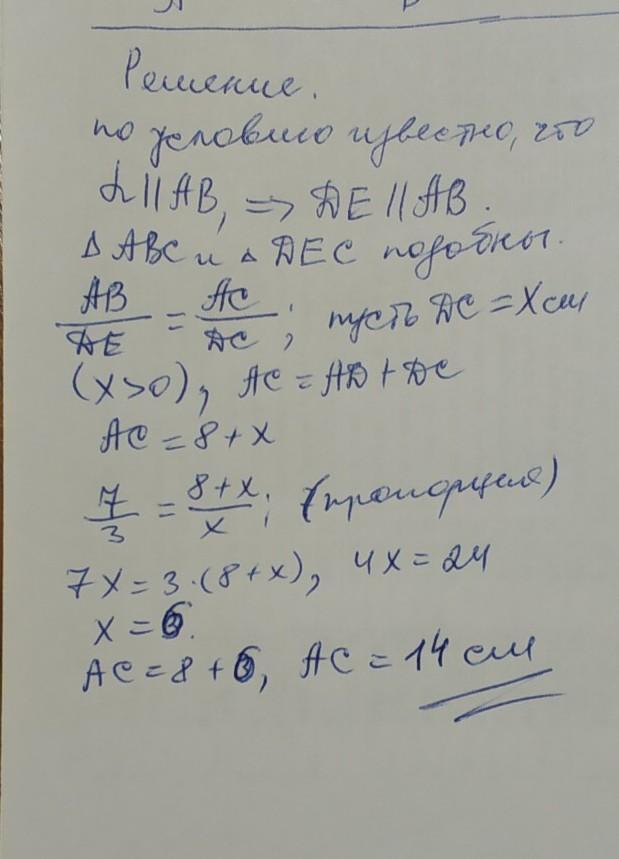 Решение.
по условию известно, что
α || AB, => DE || AB.
△ ABC и △ DEC подобны.
AB/DE = AC/DC; пусть DC = X см
(X>0), AC = AD + DC
AC = 8 + X
7/3 = 8+x/x; (пропорция)
7X = 3·(8+x), 4X = 24
X = 6.
AC = 8 + 6, AC = 14 см